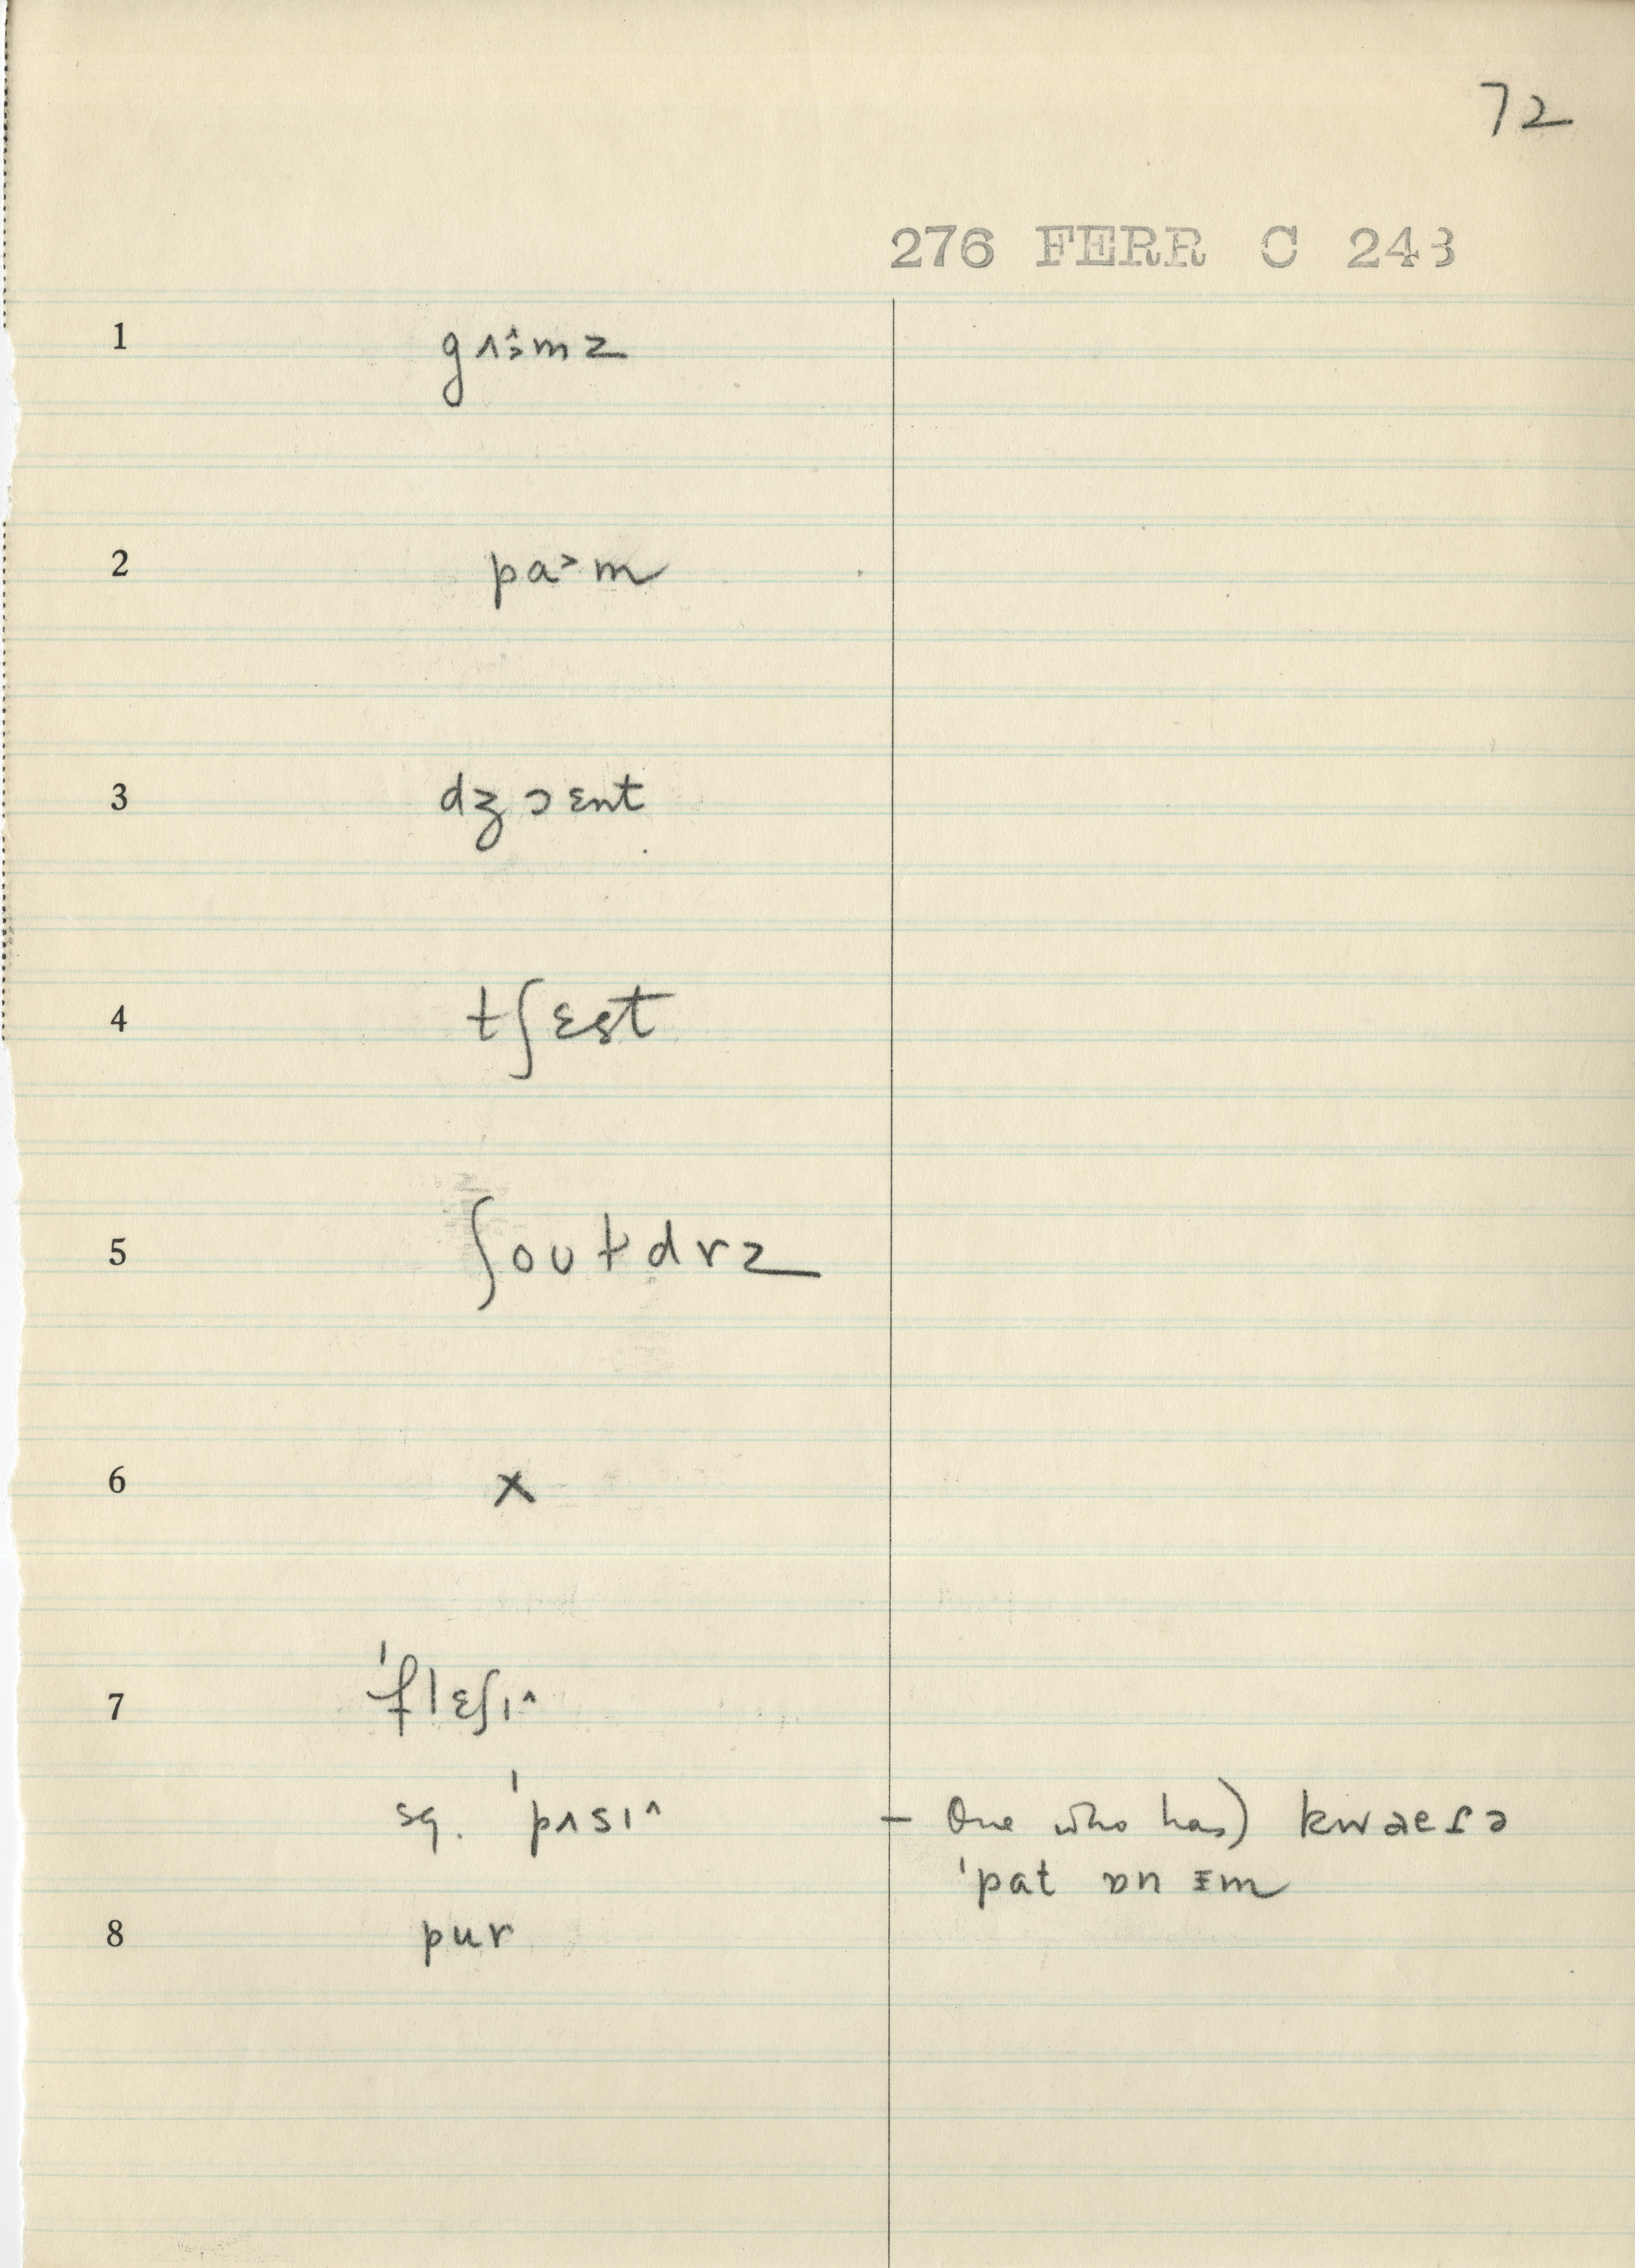 72
276 FERR C 243
1 gʌ˔˃mz
2 pa˃m
3 dʒɔɛnt
4 tʃɛst
5 ʃoʊɫdrz
6 x
7 ˈflɛʃɪ^
sq. ˈpʌsɪ^ – One who has) kwaeɾə
ˈpat ɒn ɪm
8 pur